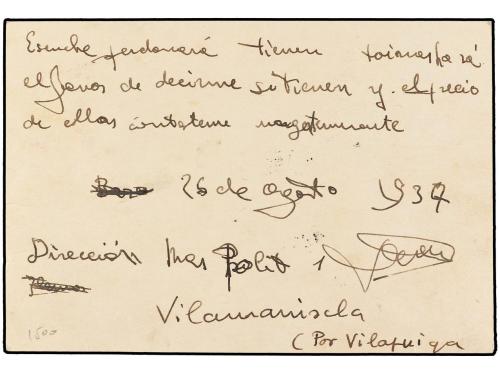 Escuche perdonará tienen
el favor de decirme si tienen y el precio
de ellas contésteme
26 de agosto 1937
Dirección Mas Polit 1
Vilamaniscla
(Por Vilajuiga
1500